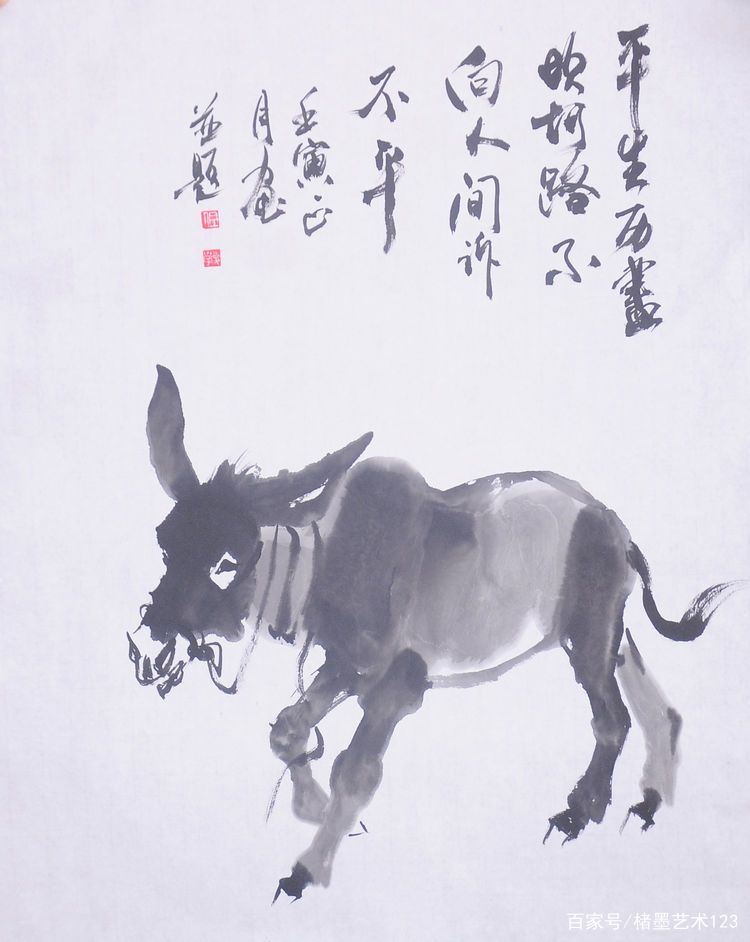 平生历尽
坎坷路不
向人间诉
不平
壬寅正
月画
并题
百家号/楮墨艺术123